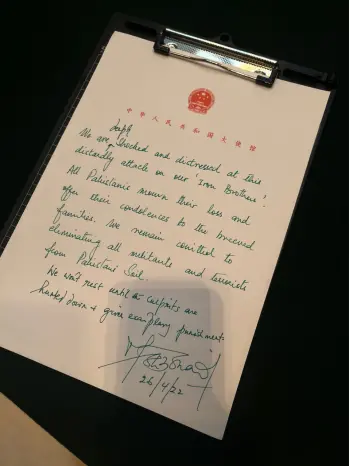 中华人民共和国大使馆
deeply
We are shocked and distressed at this
dastardly attack on our 'Iron Brothers'.
All Pakistanis mourn their loss and
offer their condolences to the bereaved
families. We remain comitted to
eliminating all militants and terrorists
from Pakistani Soil.
We won't rest until culprits are
hunted down & given exemplary punishment.
26/4/22